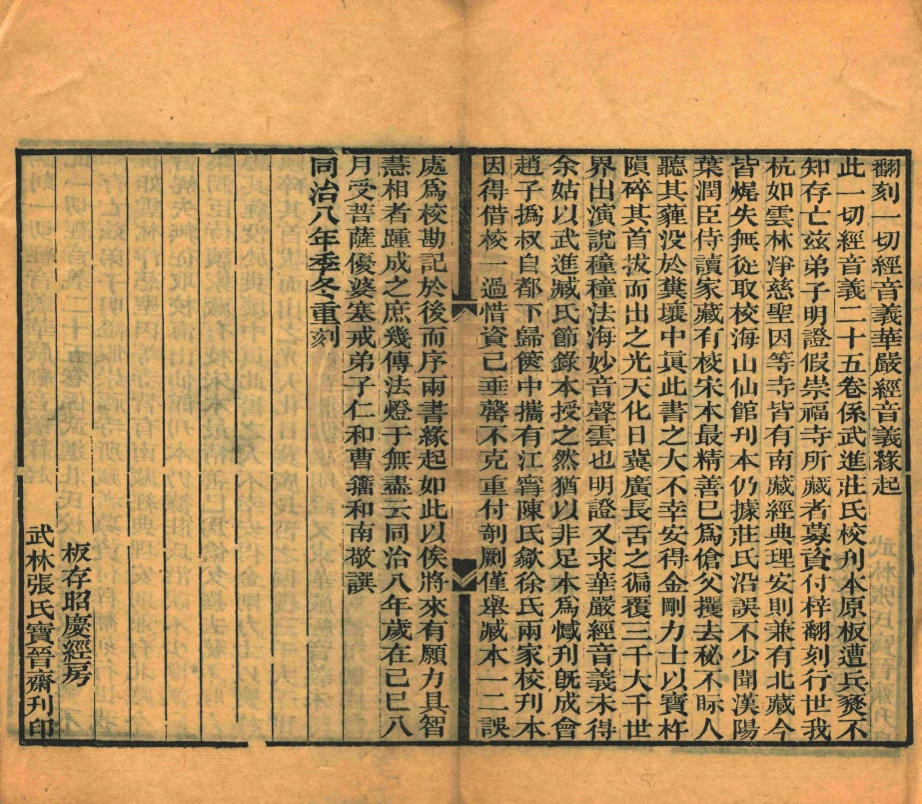 翻刻一切經音義華嚴經音義緣起
此一切經音義二十五卷係武進莊氏校刊本原板遭兵燹不
知存亡兹弟子明證假崇福寺所藏者募資付梓翻刻行世我
杭如雲林淨慈聖因等寺皆有南藏經典理安則兼有北藏今
皆娓失無從取校海山仙館刊本仍據莊氏沿誤不少聞漢陽
葉潤臣侍讀家藏有校宋本最精善已爲傖父攫去秘不眎人
聽其薶没於糞壤中眞此書之大不幸安得金剛力士以寶杵
隕碎其首拔而出之光天化日冀廣長舌之徧覆三千大千世
界出演說種種法海妙音聲雲也明證又求華嚴經音義未得
余姑以武進臧氏節錄本授之然猶以非足本爲憾刋旣成會
趙子撝叔自都下歸篋中攜有江寧陳氏歙徐氏兩家校刊本
因得借校一過惜資已垂罄不克重付剞劂僅舉臧本一二誤
處爲校勘記於後而序兩書緣起如此以俟將來有願力具智
慧相者踵成之庶幾傳法燈于無盡云同治八年歲在己巳八
月受菩薩優婆塞戒弟子仁和曹籒和南敬譔
同治八年季冬重刻
板存昭慶經房
武林張氏寶晉齋刊印